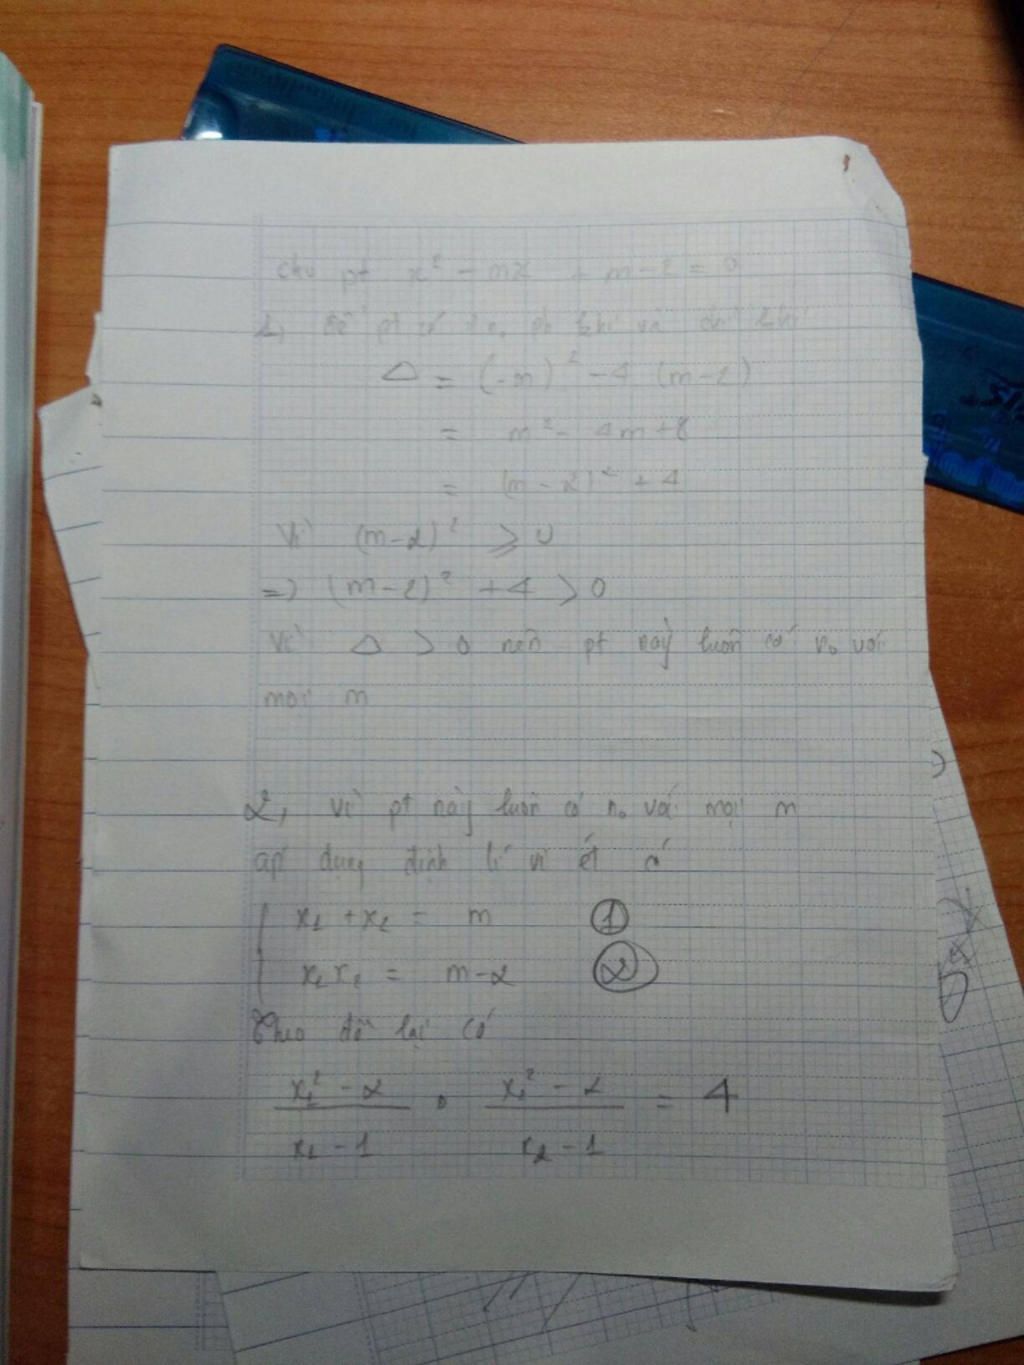 cho pt x² - mx + m - 2 = 0
1, Để pt có n₀ khi và chỉ khi
Δ = (-m)² - 4 (m-2)
= m² - 4m + 8
= (m - 2)² + 4
Vì (m-2)² ⩾ 0
=) (m-2)² + 4 > 0
Vì Δ > 0 nên pt này luôn có n₀ với
mọi m
2, Vì pt này luôn có n₀ với mọi m
áp dụng định lí vi ét có
{ x₁ + x₂ = m ①
x₁x₂ = m-2 ②
Theo đề lại có
(x₁² - 2)/(x₁ - 1) . (x₂² - 2)/(x₂ - 1) = 4